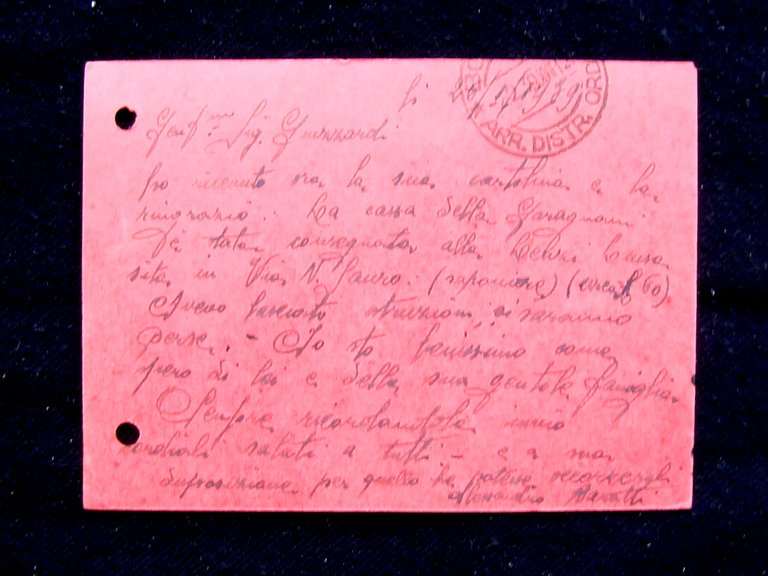 ARR. DISTR. ORD
li
Gent.ma Sig. Guizzardi
ho ricevuto ora la sua cartolina e la
ringrazio. La cassa della Garagnani
è stata consegnata alla
sita in Via N. Sauro. (saponiere) (circa £ 60)
Avevo lasciato istruzioni, si saranno
perse. - Io sto benissimo come
spero di lei e della sua gentile famiglia.
Sempre ricordandola invio
cordiali saluti a tutti - e a sua
disposizione per quello che potesse occorrergli
Alessandro